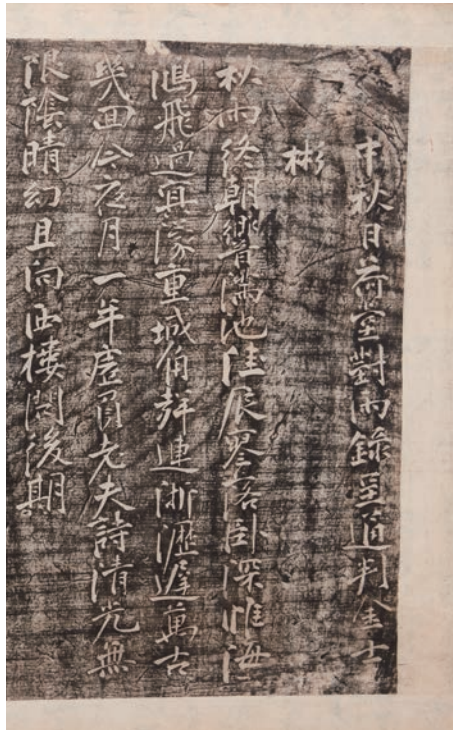 中秋日荷室對雨錄呈通判金士
彬
秋雨終朝響滿池佳辰寥落臥深帷海
鴻飛過冥濛重城角聲連淅瀝遲萬古
幾回今夜月一年虛負老夫詩清光無
限陰晴幻且向西樓後期